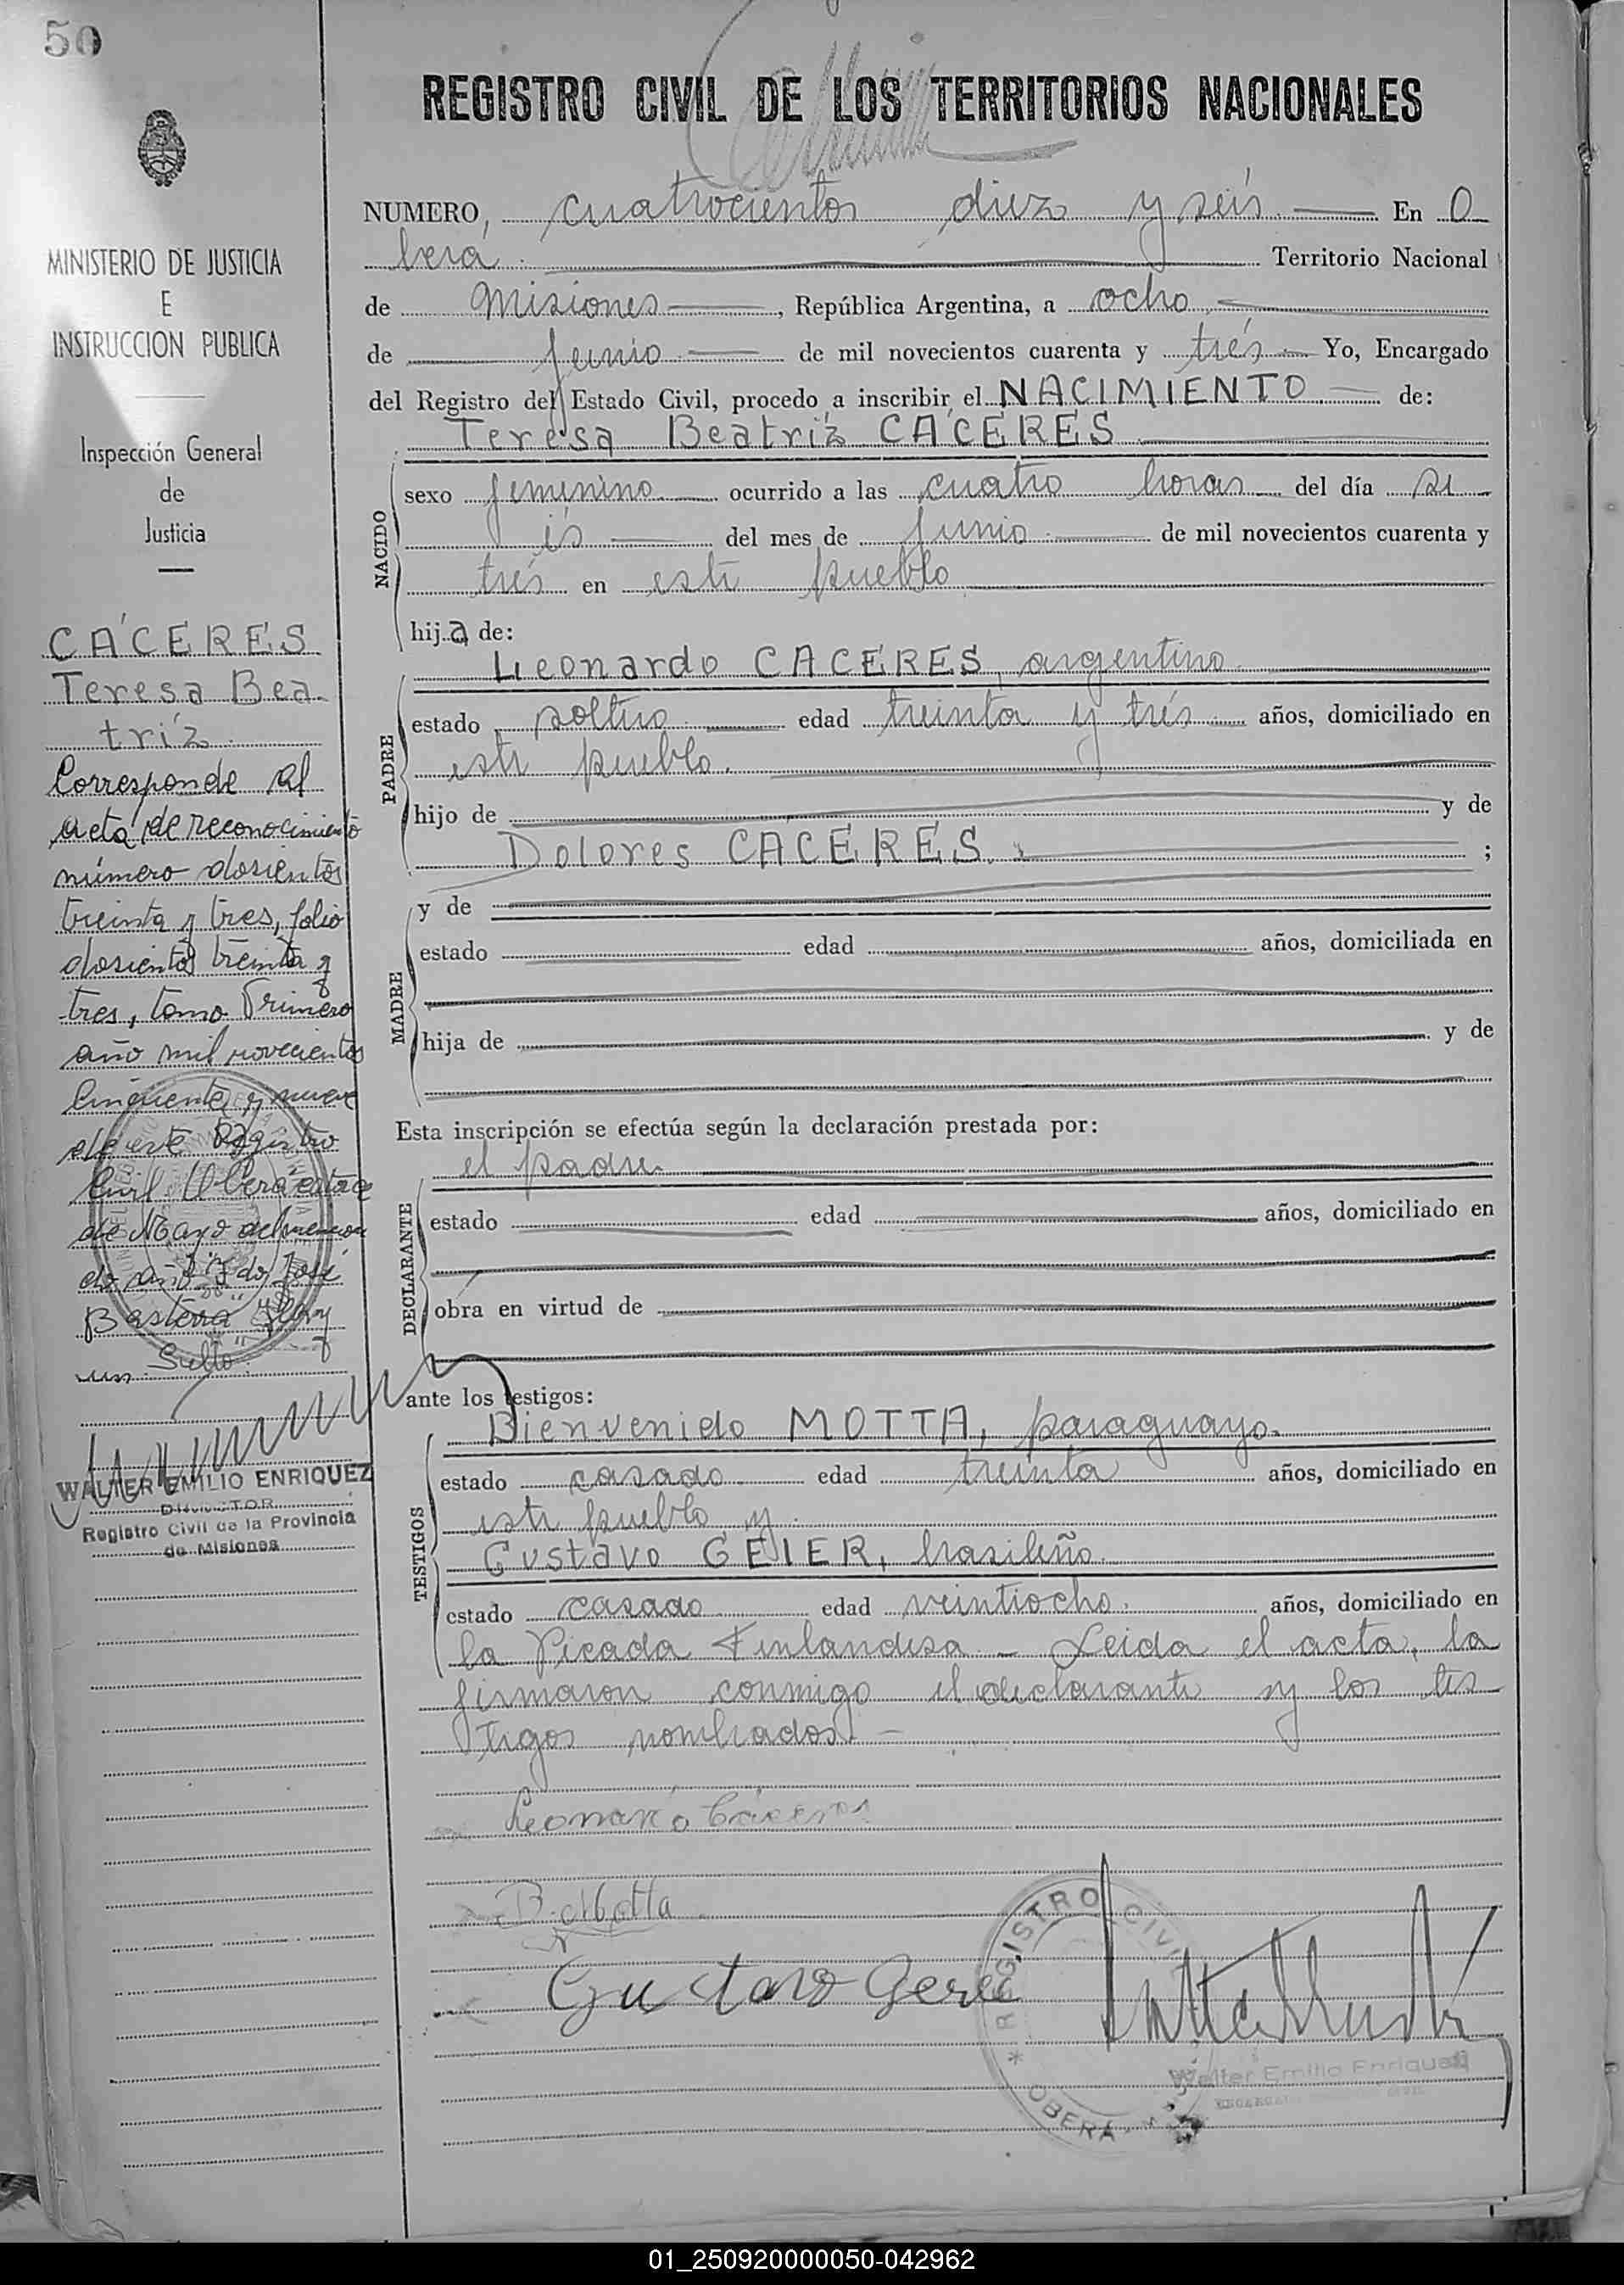 50
REGISTRO CIVIL DE LOS TERRITORIOS NACIONALES
MINISTERIO DE JUSTICIA
E
INSTRUCCION PUBLICA
Inspección General
de
Justicia
CÁCERES
Teresa Bea-
tríz
Corresponde al
acta de reconocimiento
número dosientos
treinta y tres, folio
dosientos treinta y
tres, tomo Primero
año mil novecientos
Cinquenta y nueve
de este Registro
Civil Oberá
de Mayo del mencona
do año "Fdo José
Basterra" Hay
un Sello"
WALTER EMILIO ENRIQUEZ
DIRECTOR
Registro Civil de la Provincia
de Misiones
NUMERO, cuatrocientos diez y seis En O
berá Territorio Nacional
de Misiones, República Argentina, a ocho
de Junio de mil novecientos cuarenta y trés Yo, Encargado
del Registro del Estado Civil, procedo a inscribir el NACIMIENTO de:
Teresa Beatríz CÁCERES
NACIDO
sexo femenino ocurrido a las cuatro horas del día se
is del mes de Junio de mil novecientos cuarenta y
trés en este pueblo
hija de:
PADRE
Leonardo CACERES, argentino
estado soltero edad treinta y trés años, domiciliado en
este pueblo.
hijo de y de
Dolores CACERES. ;
MADRE
y de
estado edad años, domiciliada en
hija de y de
Esta inscripción se efectúa según la declaración prestada por:
el padre
DECLARANTE
estado edad años, domiciliado en
obra en virtud de
ante los testigos:
TESTIGOS
Bienvenido MOTTA, paraguayo.
estado casado edad treinta años, domiciliado en
este pueblo y
Gustavo GEIER, brasileño.
estado casado edad veintiocho. años, domiciliado en
la Picada Finlandesa - Leida el acta, la
firmaron conmigo el declarante y los tes
tigos nombrados. -
Leonardo Cáceres
B. Motta
Gustavo
REGISTRO CIVIL
* OBERÁ
Walter Emilio Enriquez
01_250920000050-042962